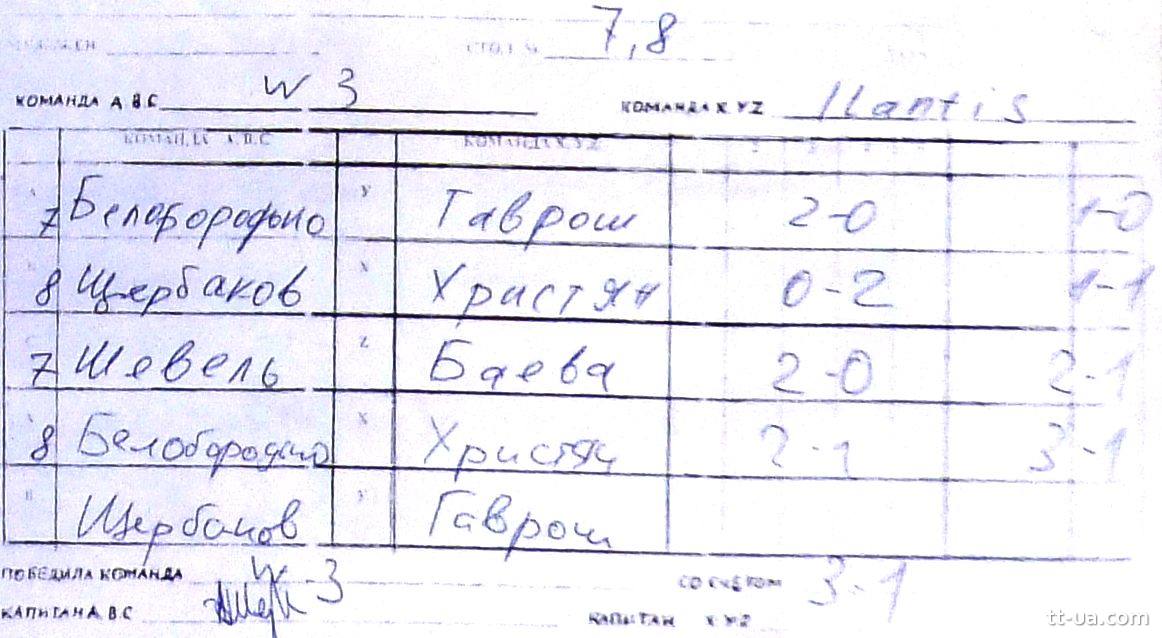 СТОЛ № 7,8
КОМАНДА А.В.С W 3 КОМАНДА X.Y.Z Mantis
КОМАНДА А.В.С КОМАНДА X.Y.Z
7 Белобородько У Гаврош 2-0 1-0
8 Щербаков X Христян 0-2 1-1
7 Шевель Z Баева 2-0 2-1
8 Белобородько X Христян 2-1 3-1
В Щербаков У Гаврош
ПОБЕДИЛА КОМАНДА W-3 СО СЧЕТОМ 3-1
КАПИТАН А.В.С КАПИТАН X Y Z
tt-ua.com